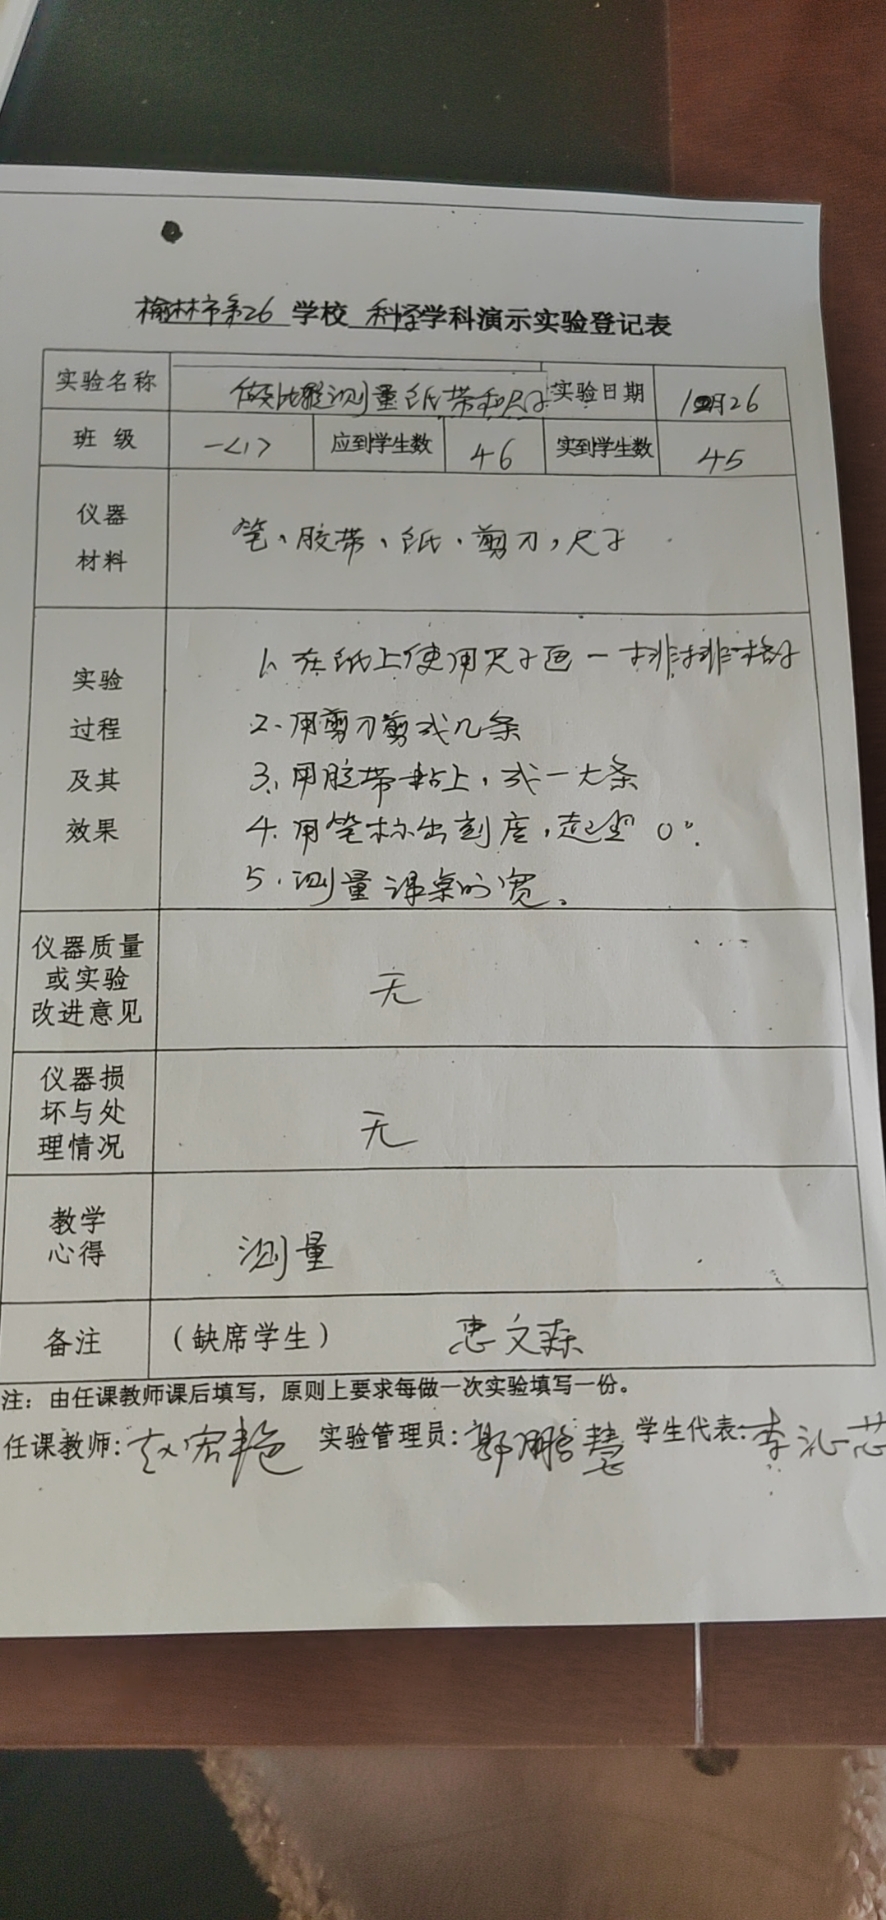 榆林市第26 学校 科学学科演示实验登记表
实验名称 做比较测量纸带和尺子 实验日期 12月26
班 级 一<1> 应到学生数 46 实到学生数 45
仪器
材料
笔、胶带、纸、剪刀,尺子
实验
过程
及其
效果
1、在纸上使用尺子画一排排格子
2、用剪刀剪成几条
3、用胶带粘上,成一大条
4、用笔标出刻度,起点 0。
5、测量课桌的宽。
仪器质量
或实验
改进意见
无
仪器损
坏与处
理情况
无
教学
心得
测量
备注 (缺席学生) 惠文
注:由任课教师课后填写,原则上要求每做一次实验填写一份。
任课教师:赵宏艳 实验管理员:郭鹏慧 学生代表:李沁芯